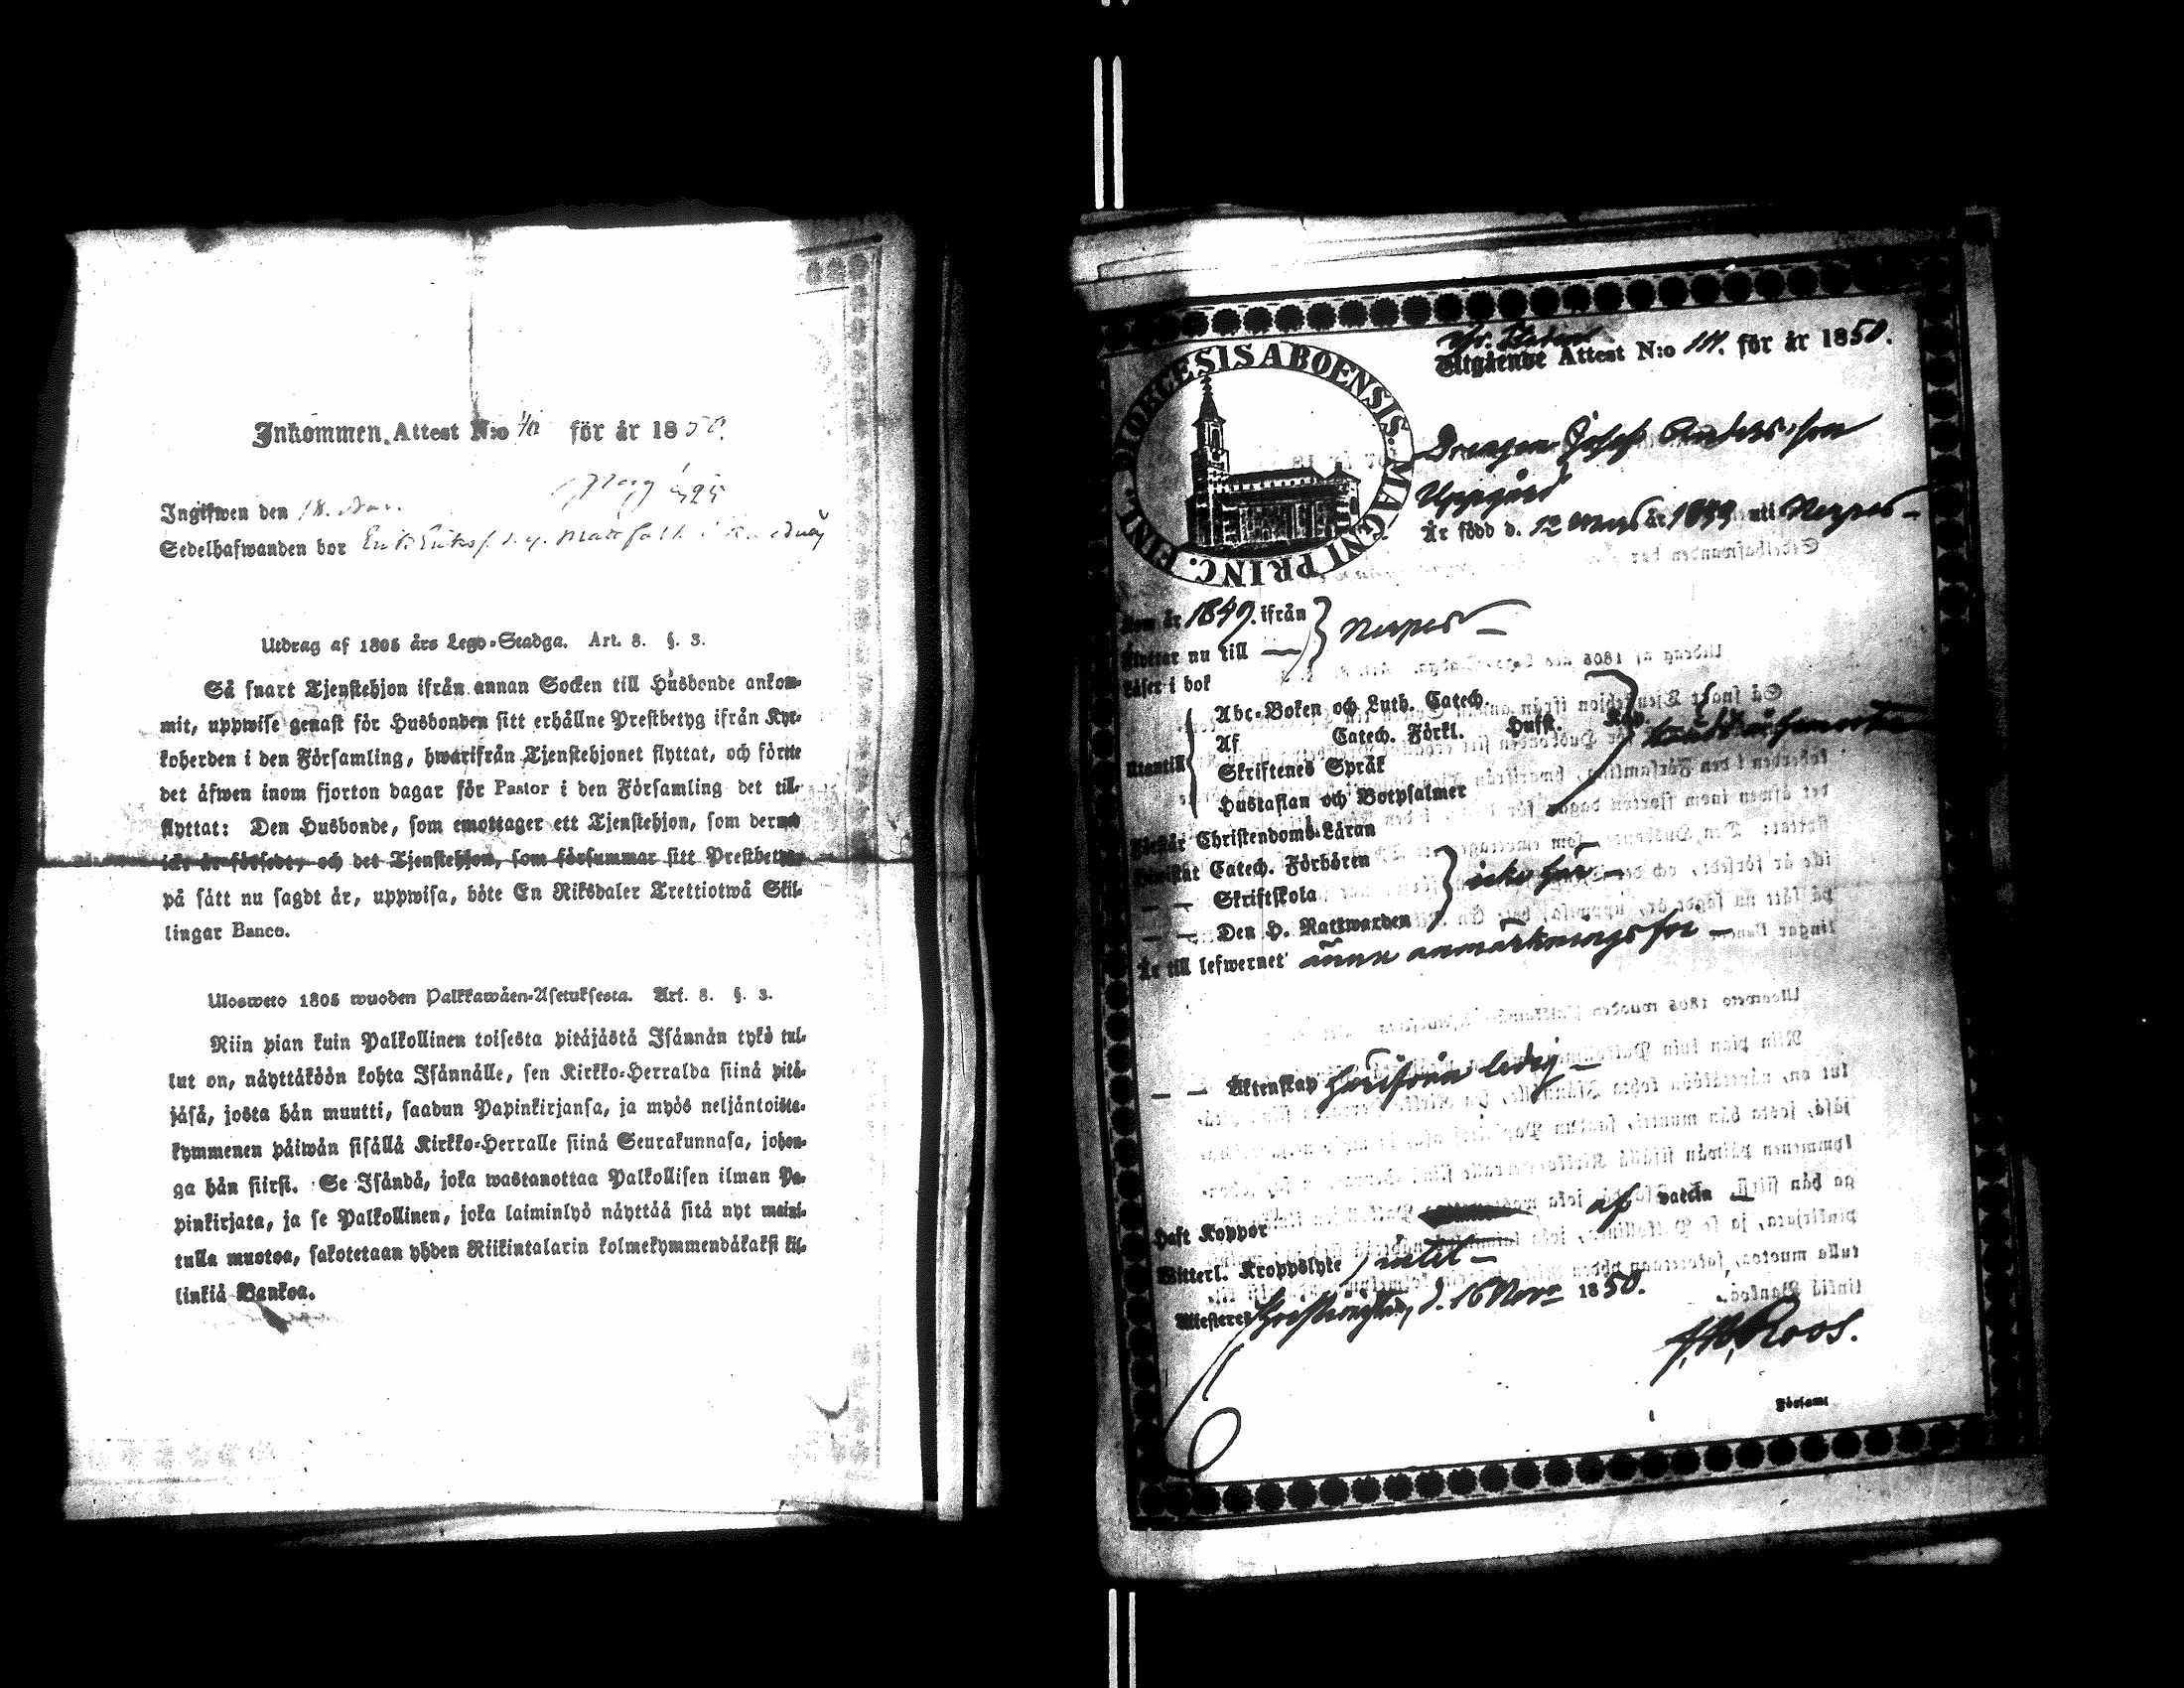 Inkommen Attest N:o för år 1850.
Ingifwen den 18.
Sedelhafwanden bor Erik Eriks
Utdrag af 1805 års Lego-Stadga. Art. 8. §. 3.
Så snart Tjenstehjon ifrån annan Socken till Husbonde ankom-
mit, uppwise genast för Husbonden sitt erhållne Prestbetyg ifrån Kyr-
koherden i den Församling, hwarifrån Tjenstehjonet flyttat, och förete
det äfwen inom fjorton dagar för Pastor i den Församling det till-
flyttat: Den Husbonde, som emottager ett Tjenstehjon, som dermed
icke är försedt, och det Tjenstehjon, som försummar sitt Prestbetyg,
på sätt nu sagdt är, uppwisa, böte En Riksdaler Trettiotwå Skil-
lingar Banco.
Ulosweto 1805 wuoden Palkkawäen-Asetuksesta. Art. 8. §. 3.
Niin pian kuin Palkollinen toisesta pitäjästä Isännän tykö tul-
lut on, näyttäköön kohta Isännälle, sen Kirkko-Herralda siinä pitä-
jäsä, josta hän muutti, saadun Papinkirjansa, ja myös neljäntoista-
kymmenen päiwän sisällä Kirkko-Herralle siinä Seurakunnasa, johon-
ga hän siirsi. Se Isändä, joka wastanottaa Palkollisen ilman Pa-
pinkirjata, ja se Palkollinen, joka laiminlyö näyttää sitä nyt maini-
tulla muotoa, sakotetaan yhden Riikintalarin kolmekymmendäkaksi kil-
linkiä Bankoa.
DIOECESIS ABOENSIS. MAGNI PRINC. FINL.
Utgående Attest N:o för år 1850.
Drengen Josef Andersson
Uppgård
Är född d. 12 år uti Nerpes
Kom år 1849. ifrån
Flyttar nu till
Nerpes
Läser i bok
Utantill
Abc-Boken och Luth. Catech.
Af Catech. Förkl. Huffst. Kap.
Skriftenes Språk
Hustaflan och Botpsalmer
Förstår Christendoms-Läran
Bewistat Catech. Förhören
— — Skriftskola
— — Den H. Nattwarden
icke här
Är till lefwernet utan anmärkningsfri
— — Äktenskap ledig
Haft Koppor af vaccin
Witterl. Kroppslyte intet
Attesteres d. 16 Nov. 1850.
Roos.
Församl